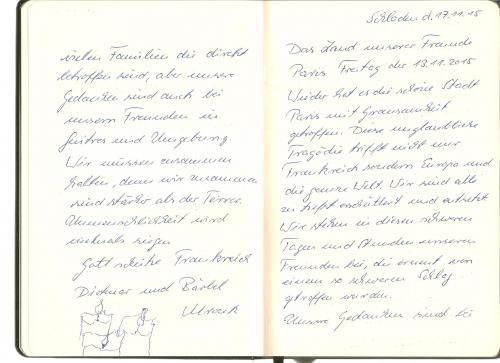 Schladen d. 17.11.15
Das Land unserer Freunde
Paris Freitag der 13.11.2015
Wieder hat es die schöne Stadt
Paris mit Grausamkeit
getroffen. Diese unglaubliche
Tragödie trifft nicht nur
Frankreich sondern Europa und
die ganze Welt. Wir sind alle
zu tiefst erschüttert und entsetzt
Wir stehen in diesen schweren
Tagen und Stunden unseren
Freunden bei, die erneut von
einem so schweren Schlag
getroffen wurden.
Unsere Gedanken sind bei
vielen Familien die direkt
betroffen sind, aber unsere
Gedanken sind auch bei
unseren Freunden in
und Umgebung.
Wir müssen zusammen
halten, denn wir zusammen
sind stärker als der Terror.
Unmenschlichkeit wird
niemals siegen
Gott schütze Frankreich
Dietmar und Bärbel